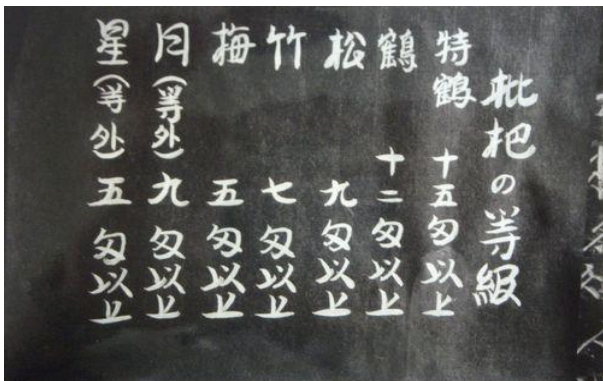 枇杷の等級
特鶴 十五匁以上
鶴 十二匁以上
松 九匁以上
竹 七匁以上
梅 五匁以上
月(等外) 九匁以上
星(等外) 五匁以上